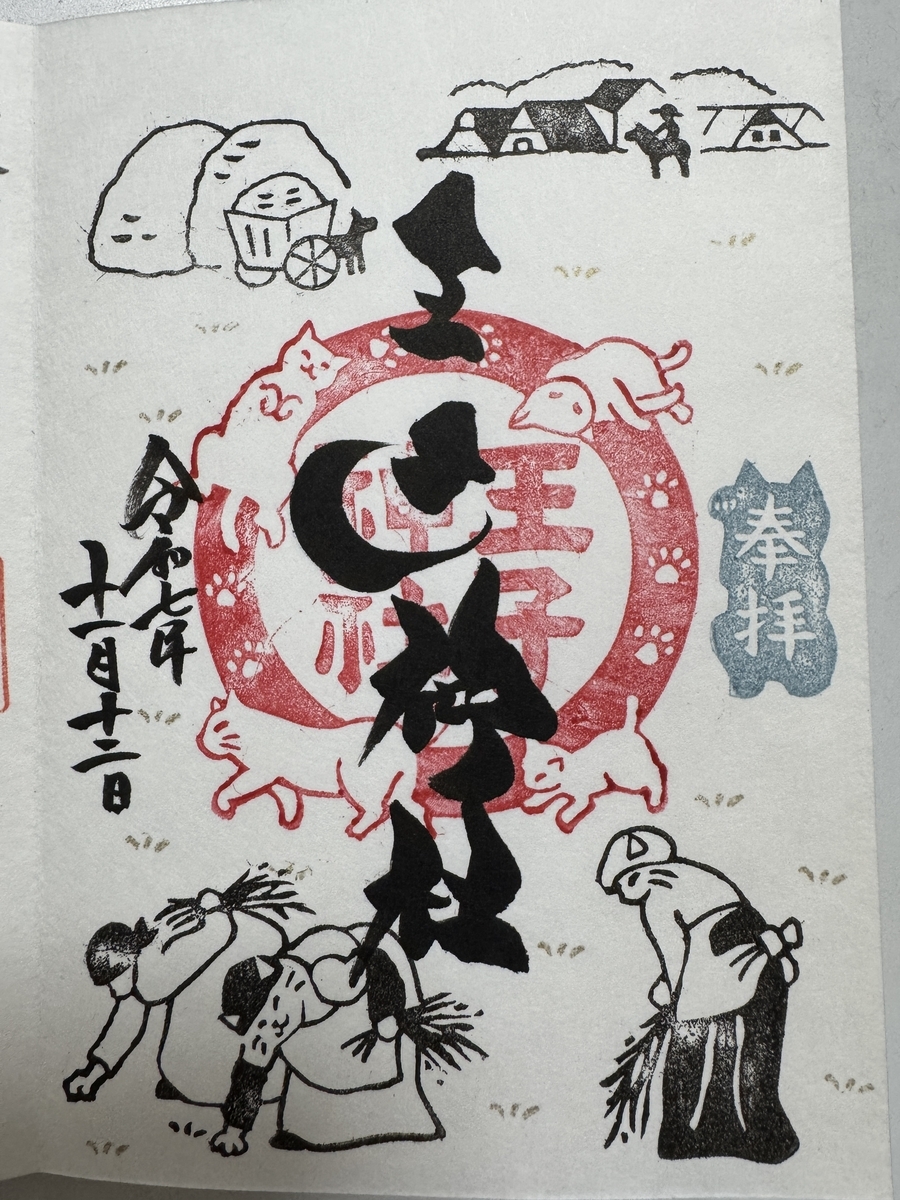 奉拝
王子神社
王子
神社
令和七年
十一月十二日